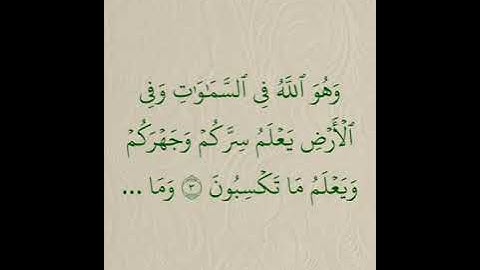 وَهُوَ ٱللَّهُ فِى ٱلسَّمَٰوَٰتِ وَفِى
ٱلْأَرْضِ يَعْلَمُ سِرَّكُمْ وَجَهْرَكُمْ
وَيَعْلَمُ مَا تَكْسِبُونَ ۝٣ وَمَا ...